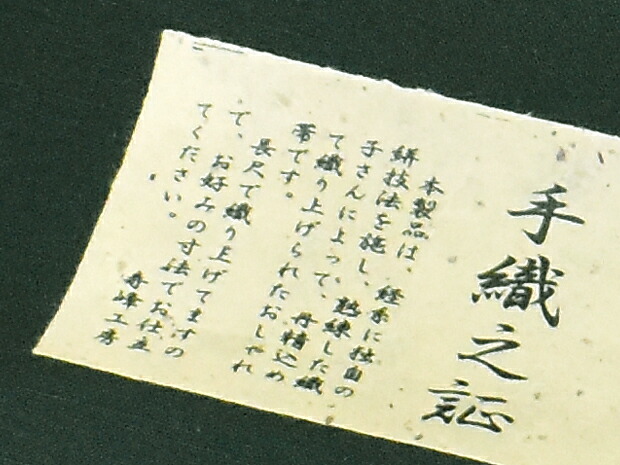 手織之証
本製品は、経糸に独自の
絣技法を施し、熟練した織
子さんによって、丹精込め
て織り上げられたおしゃれ
帯です。
長尺で織り上げてますの
で、お好みの寸法でお仕立
てください。
寿峰工房